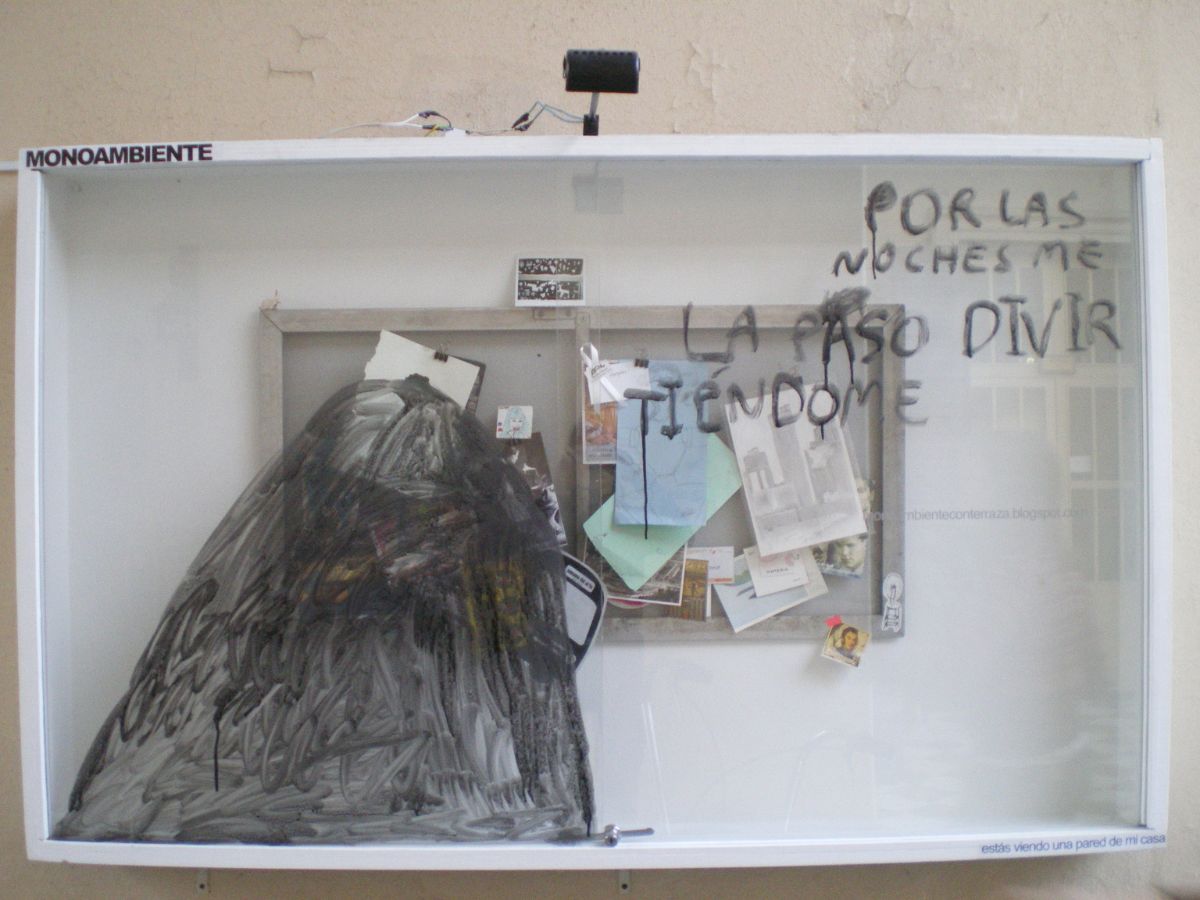 MONOAMBIENTE
POR LAS
NOCHES ME
LA PASO DIVIR
TIÉNDOME
ambienteconterraza.blogspot.com
estás viendo una pared de mi casa